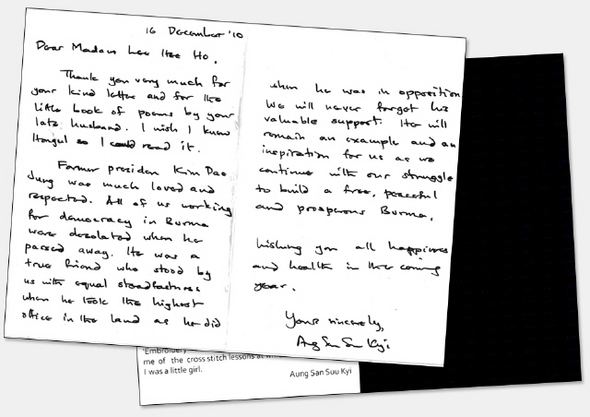 16 December '10
Dear Madam Lee Hee Ho,
Thank you very much for
your kind letter and for the
little book of poems by your
late husband. I wish I knew
Hangul so I could read it.
Former president Kim Dae
Jung was much loved and
respected. All of us working
for democracy in Burma
were desolated when he
passed away. He was a
true friend who stood by
us with equal steadfastness
when he took the highest
office in the land as he did
when he was in opposition.
We will never forget his
valuable support. He will
remain an example and an
inspiration for us as we
continue with our struggle
to build a free, peaceful
and prosperous Burma.
Wishing you all happiness
and health in the coming
year.
Yours sincerely,
Aung San Suu Kyi
'Embroidery
me of the cross stitch lessons at
I was a little girl.
Aung San Suu Kyi